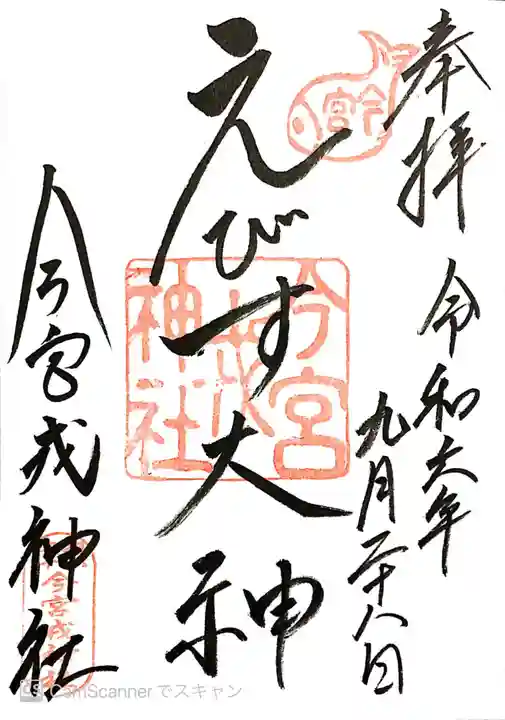 奉拝
令和六年
九月二十八日
今宮
えびす大神
今宮戎神社
今宮戎神社
CS CamScanner でスキャン